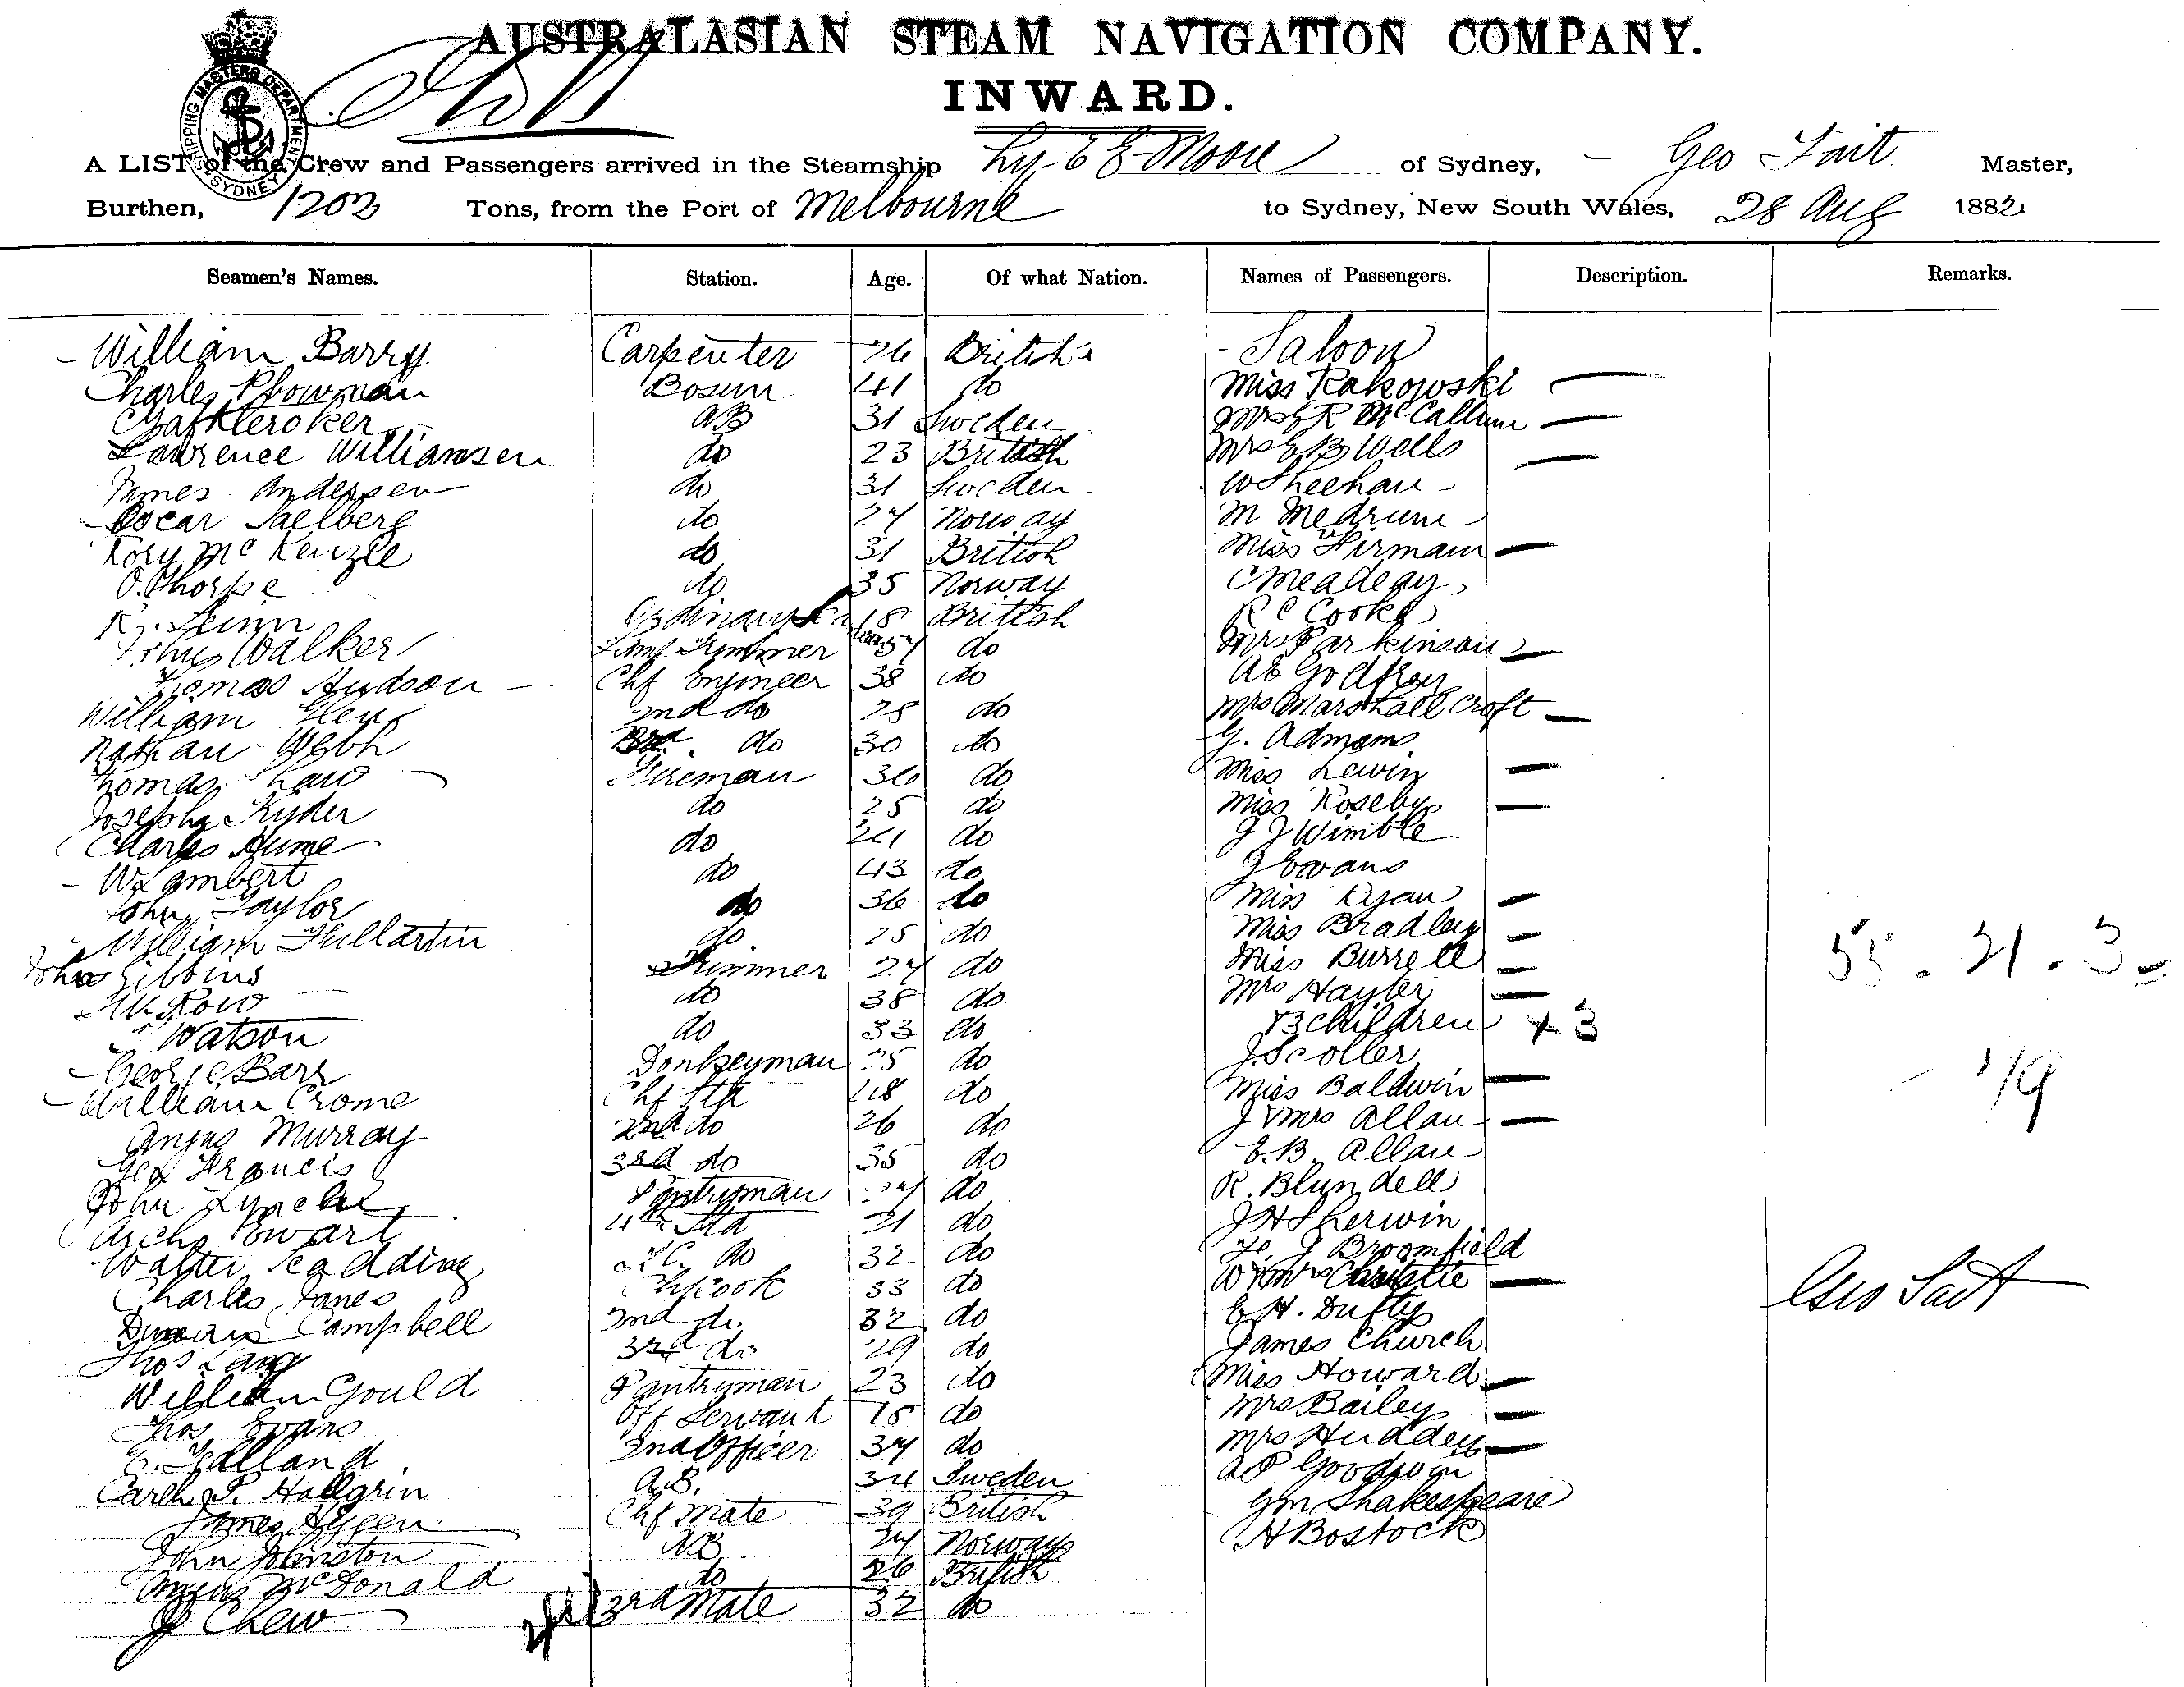 AUSTRALASIAN STEAM NAVIGATION COMPANY.
INWARD.
SHIPPING MASTERS DEPARTMENT SYDNEY
A LIST of the Crew and Passengers arrived in the Steamship Ly E E Moore of Sydney, Geo Tait Master,
Burthen, 1202 Tons, from the Port of Melbourne to Sydney, New South Wales, 28 Aug 1882
Seamen's Names. Station. Age. Of what Nation. Names of Passengers. Description. Remarks.
William Barry Carpenter 26 British Saloon
Charles Bosun 41 do Miss Rakowski
AB 31 Sweden Mrs McCallum
Laurence Williamsen do 23 British Mrs E B Wells
James Andersen do 31 Sweden W Sheehan
Oscar Saelberg do 27 Norway M
Rory McKenzie do 31 British Miss Firman
O. Thorpe do 35 Norway
18 British R C Cooke
Walker Trimmer do Mrs Parkinson
Thomas Hudson Chf Engineer 38 do A E Godfrey
William 2nd do 28 do Mrs Marshall Croft
Nathan 3rd do 30 do G. Admams
Thomas Law Fireman do Miss Lewin
Joseph Ryder do 25 do Miss Roseby
Charles Hume do do J J Wimble
W Lambert do 43 do J Evans
John Taylor do 36 do Miss Ryan
William Fullartin do 25 do Miss Bradley
John Gibbins Trimmer 27 do Miss Burrell
Row do 38 do Mrs Hayter
Watson do 33 do 3 children x 3
55 . 21 . 3
George Barr Donkeyman 35 do J. Scoller
William Crome Chf Std 28 do Miss Baldwin
1/9
Angus Murray 2nd do 26 do J & Mrs Allan
Geo Francis 3rd do 35 do E. B. Allan
John Lynch Pantryman do R. Blundell
Archd Ewart 4th Std 21 do J H Sherwin
Walter Scadding do 32 do J Broomfield
Charles Janes Ch Cook 33 do W & Mrs Christie
Geo Tait
Duncan Campbell 2nd do 32 do E H. Dufty
Thos Lang 3rd do 29 do James Church
William Gould Pantryman 23 do Miss Howard
Thos Evans Off Servant 18 do Mrs Bailey
2nd Officer 37 do Mrs Hudden
Carl Hallgrin A.B. 34 Sweden A P Goodwin
James Chf Mate 39 British Shakespeare
John Johnston AB 24 Norway H Bostock
Angus McDonald do 26 British
J Chew 3rd Mate 32 do